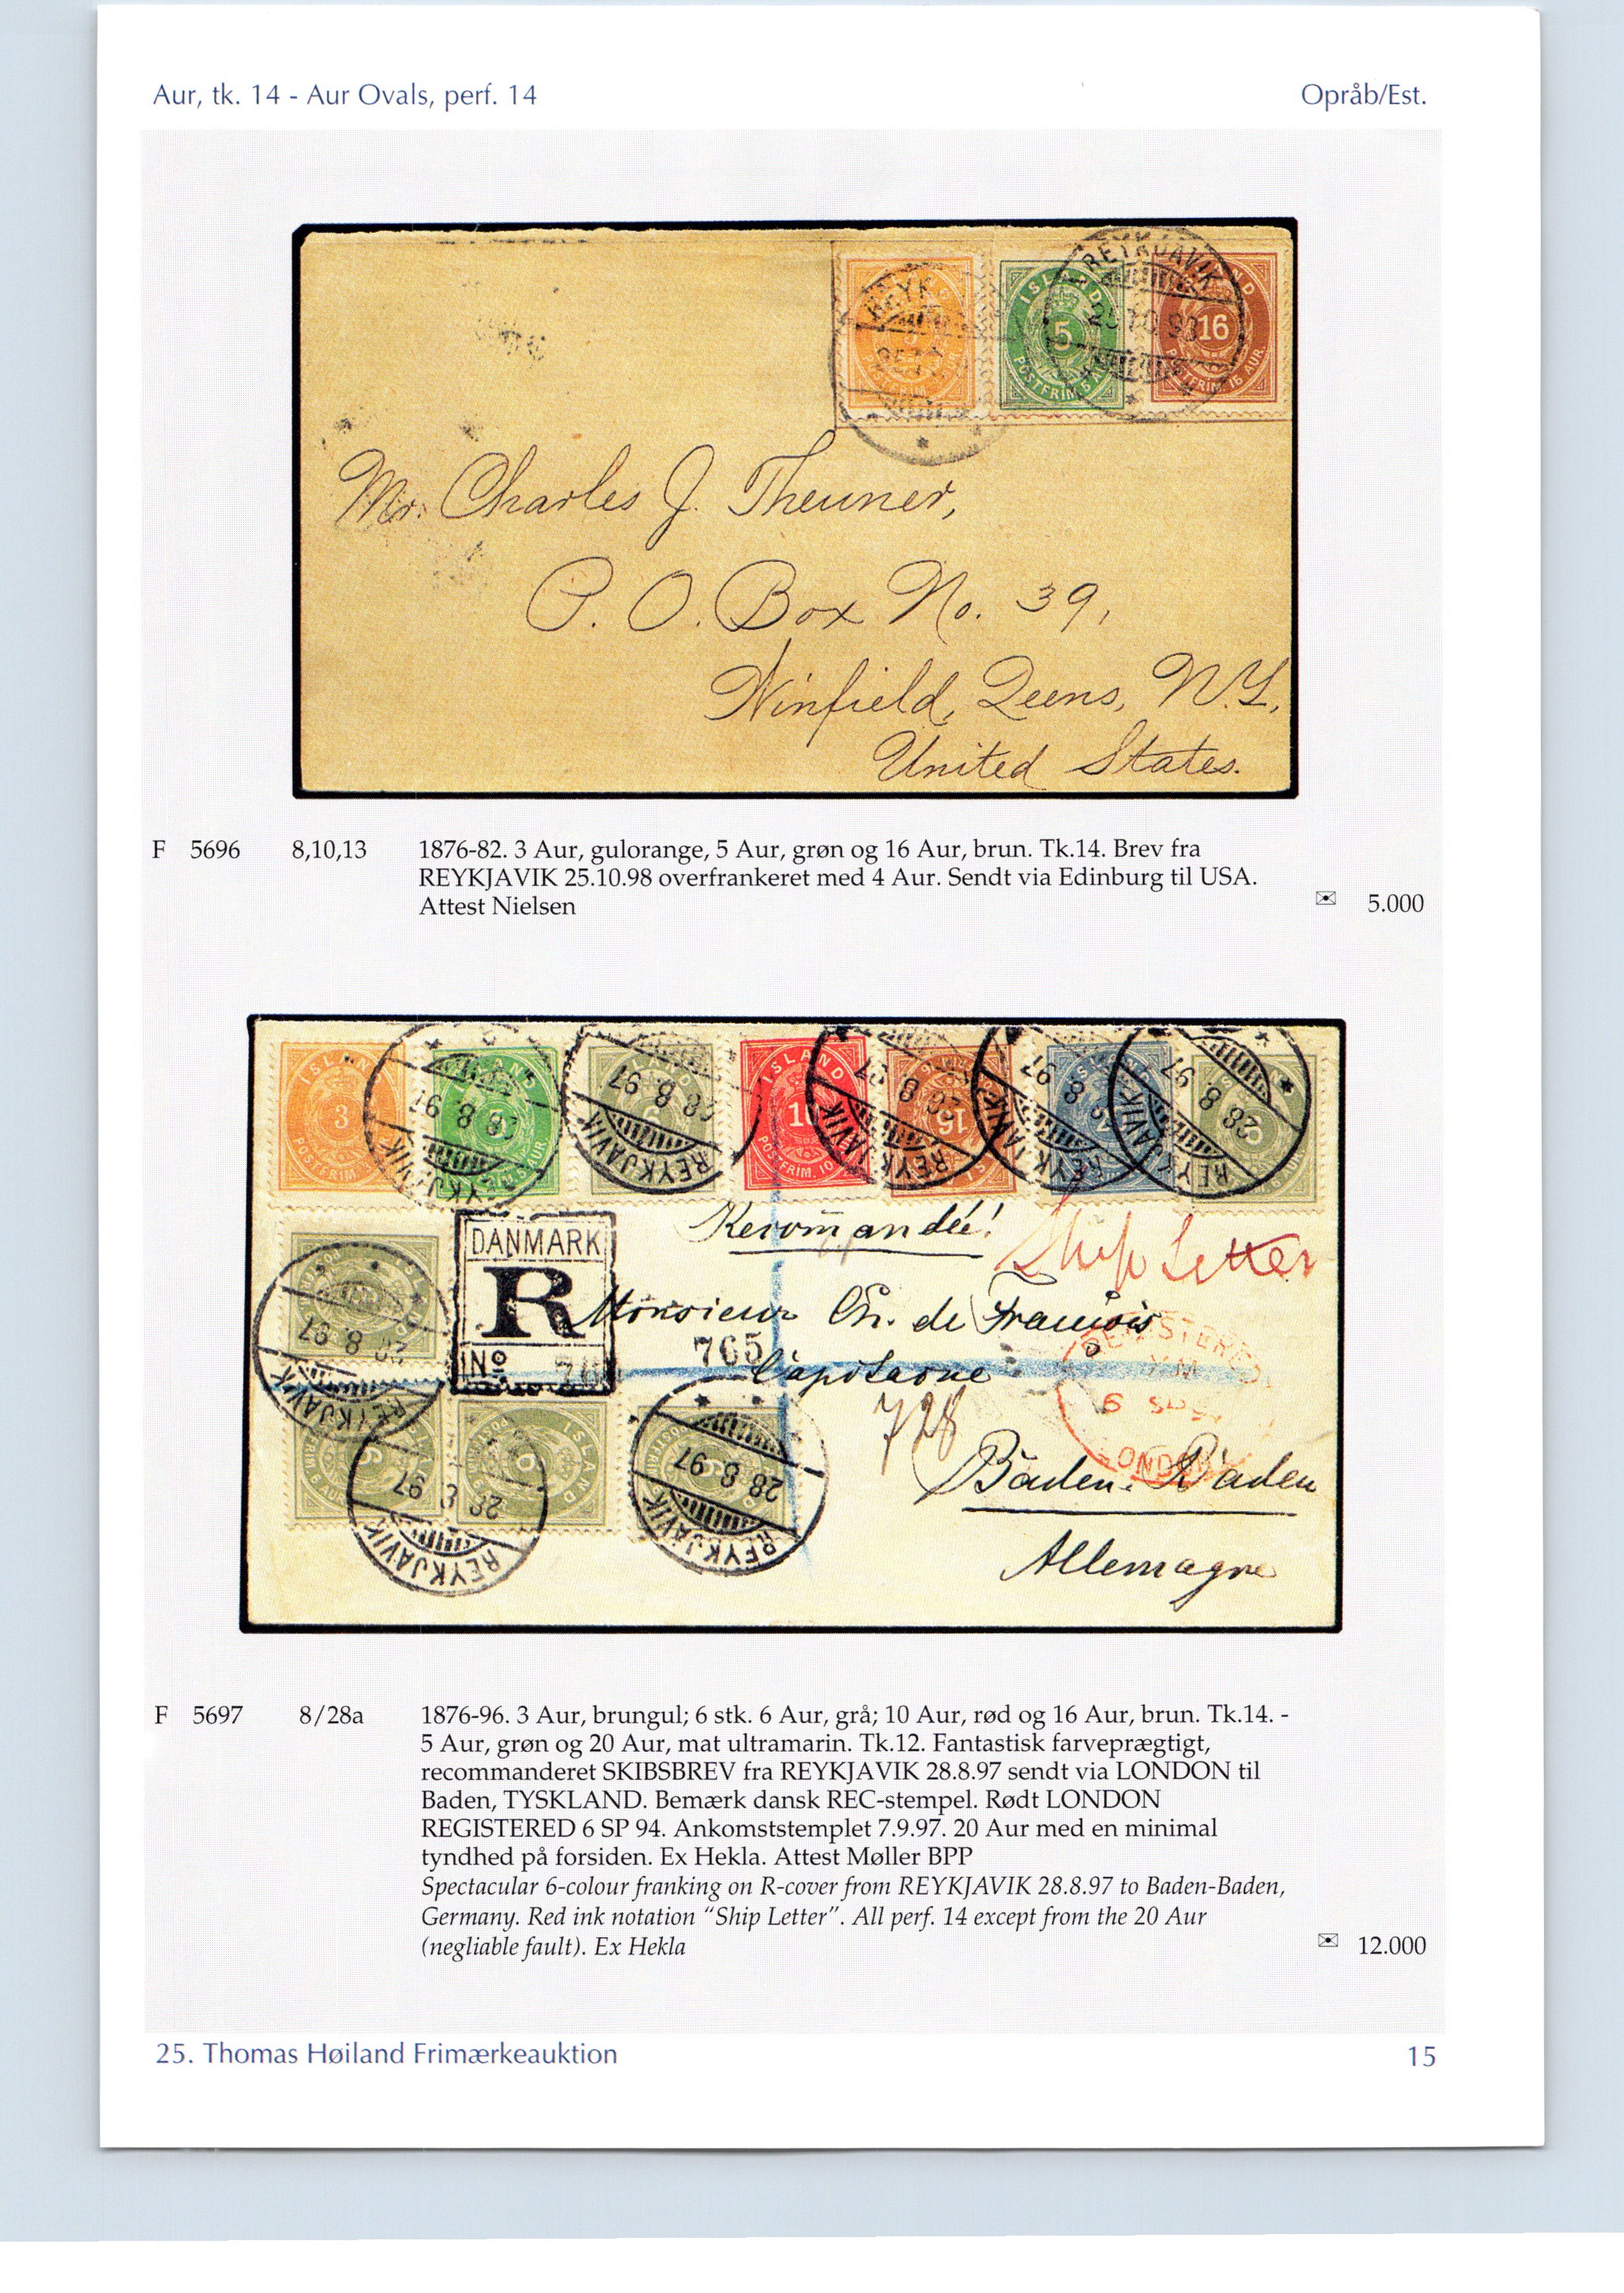 Aur, tk. 14 - Aur Ovals, perf. 14
Opråb/Est.
REYKJAVIK
ISLAND
5
16
25.10.98
POSTFRIM. 5 AUR
POSTFRIM. 16 AUR.
Mr. Charles J. Theuner,
P. O. Box No. 39,
Winfield, Queens, N.Y.
United States.
F 5696 8,10,13 1876-82. 3 Aur, gulorange, 5 Aur, grøn og 16 Aur, brun. Tk.14. Brev fra
REYKJAVIK 25.10.98 overfrankeret med 4 Aur. Sendt via Edinburg til USA.
Attest Nielsen 5.000
ISLAND
3
POSTFRIM.
28 8 97
REYKJAVIK
ISLAND
10
POSTFRIM. 10
28 8 97
REYKJAVIK
28 8 97
REYKJAVIK
Ship Letter
DANMARK
R
No
765
Monsieur Ch. de
REGISTERED
728
Baden-Baden
Allemagne
28 8 97
REYKJAVIK
28 8 97
REYKJAVIK
28 8 97
REYKJAVIK
F 5697 8/28a 1876-96. 3 Aur, brungul; 6 stk. 6 Aur, grå; 10 Aur, rød og 16 Aur, brun. Tk.14. -
5 Aur, grøn og 20 Aur, mat ultramarin. Tk.12. Fantastisk farveprægtigt,
recommanderet SKIBSBREV fra REYKJAVIK 28.8.97 sendt via LONDON til
Baden, TYSKLAND. Bemærk dansk REC-stempel. Rødt LONDON
REGISTERED 6 SP 94. Ankomststemplet 7.9.97. 20 Aur med en minimal
tyndhed på forsiden. Ex Hekla. Attest Møller BPP
Spectacular 6-colour franking on R-cover from REYKJAVIK 28.8.97 to Baden-Baden,
Germany. Red ink notation “Ship Letter”. All perf. 14 except from the 20 Aur
(negliable fault). Ex Hekla 12.000
25. Thomas Høiland Frimærkeauktion
15